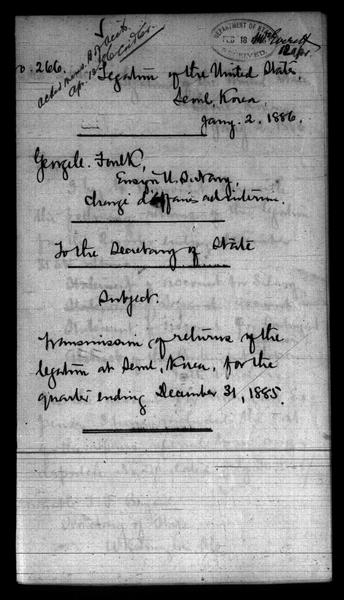 No. 266.
DEPARTMENT OF STATE
RECEIVED
Legation of the United States,
Seoul, Korea,
Jany. 2, 1886.
George C. Foulk,
Ensign U.S. Navy
Chargé d'Affaires ad interim.
To the Secretary of State
Subject.
Transmission of returns of the
legation at Seoul, Korea, for the
quarter ending December 31, 1885.